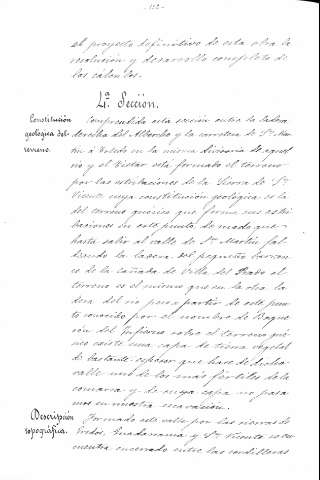 -112-
el proyecto definitivo de esta obra la
resolución y desarrollo completo de
los cálculos.
4ª Sección.
Constitución
geológica del
terreno.
Comprendida esta sección entre la ladera
derecha del Alberche y la carretera de Sn. Mar-
tín á Toledo en la misma divisoria de aguas
río y el Tietar está formado el terreno
por las estribaciones de la Sierra de Sn.
Vicente cuya constitución geológica es la
del terreno que forma sus estri-
baciones en este punto, de modo que
hasta salir al valle de Sn. Martín fal-
deando la ladera del pequeño barran-
co de la Cañada de Villa del Prado el
terreno es el mismo que en la otra la
dera del río pero á partir de este pun-
to conocido por el nombre de
del Infierno sobre el terreno
existe una capa de tierra vegetal
de bastante espesor que hace de dicho
valle uno de los más fértiles de la
comarca y de cuya capa no pasa
mos en nuestra excavación.
Descripción
topográfica.
Formado este valle por las sierras de
Gredos, Guadarrama y Sn. Vicente se en-
cuentra encerrado entre las cordilleras